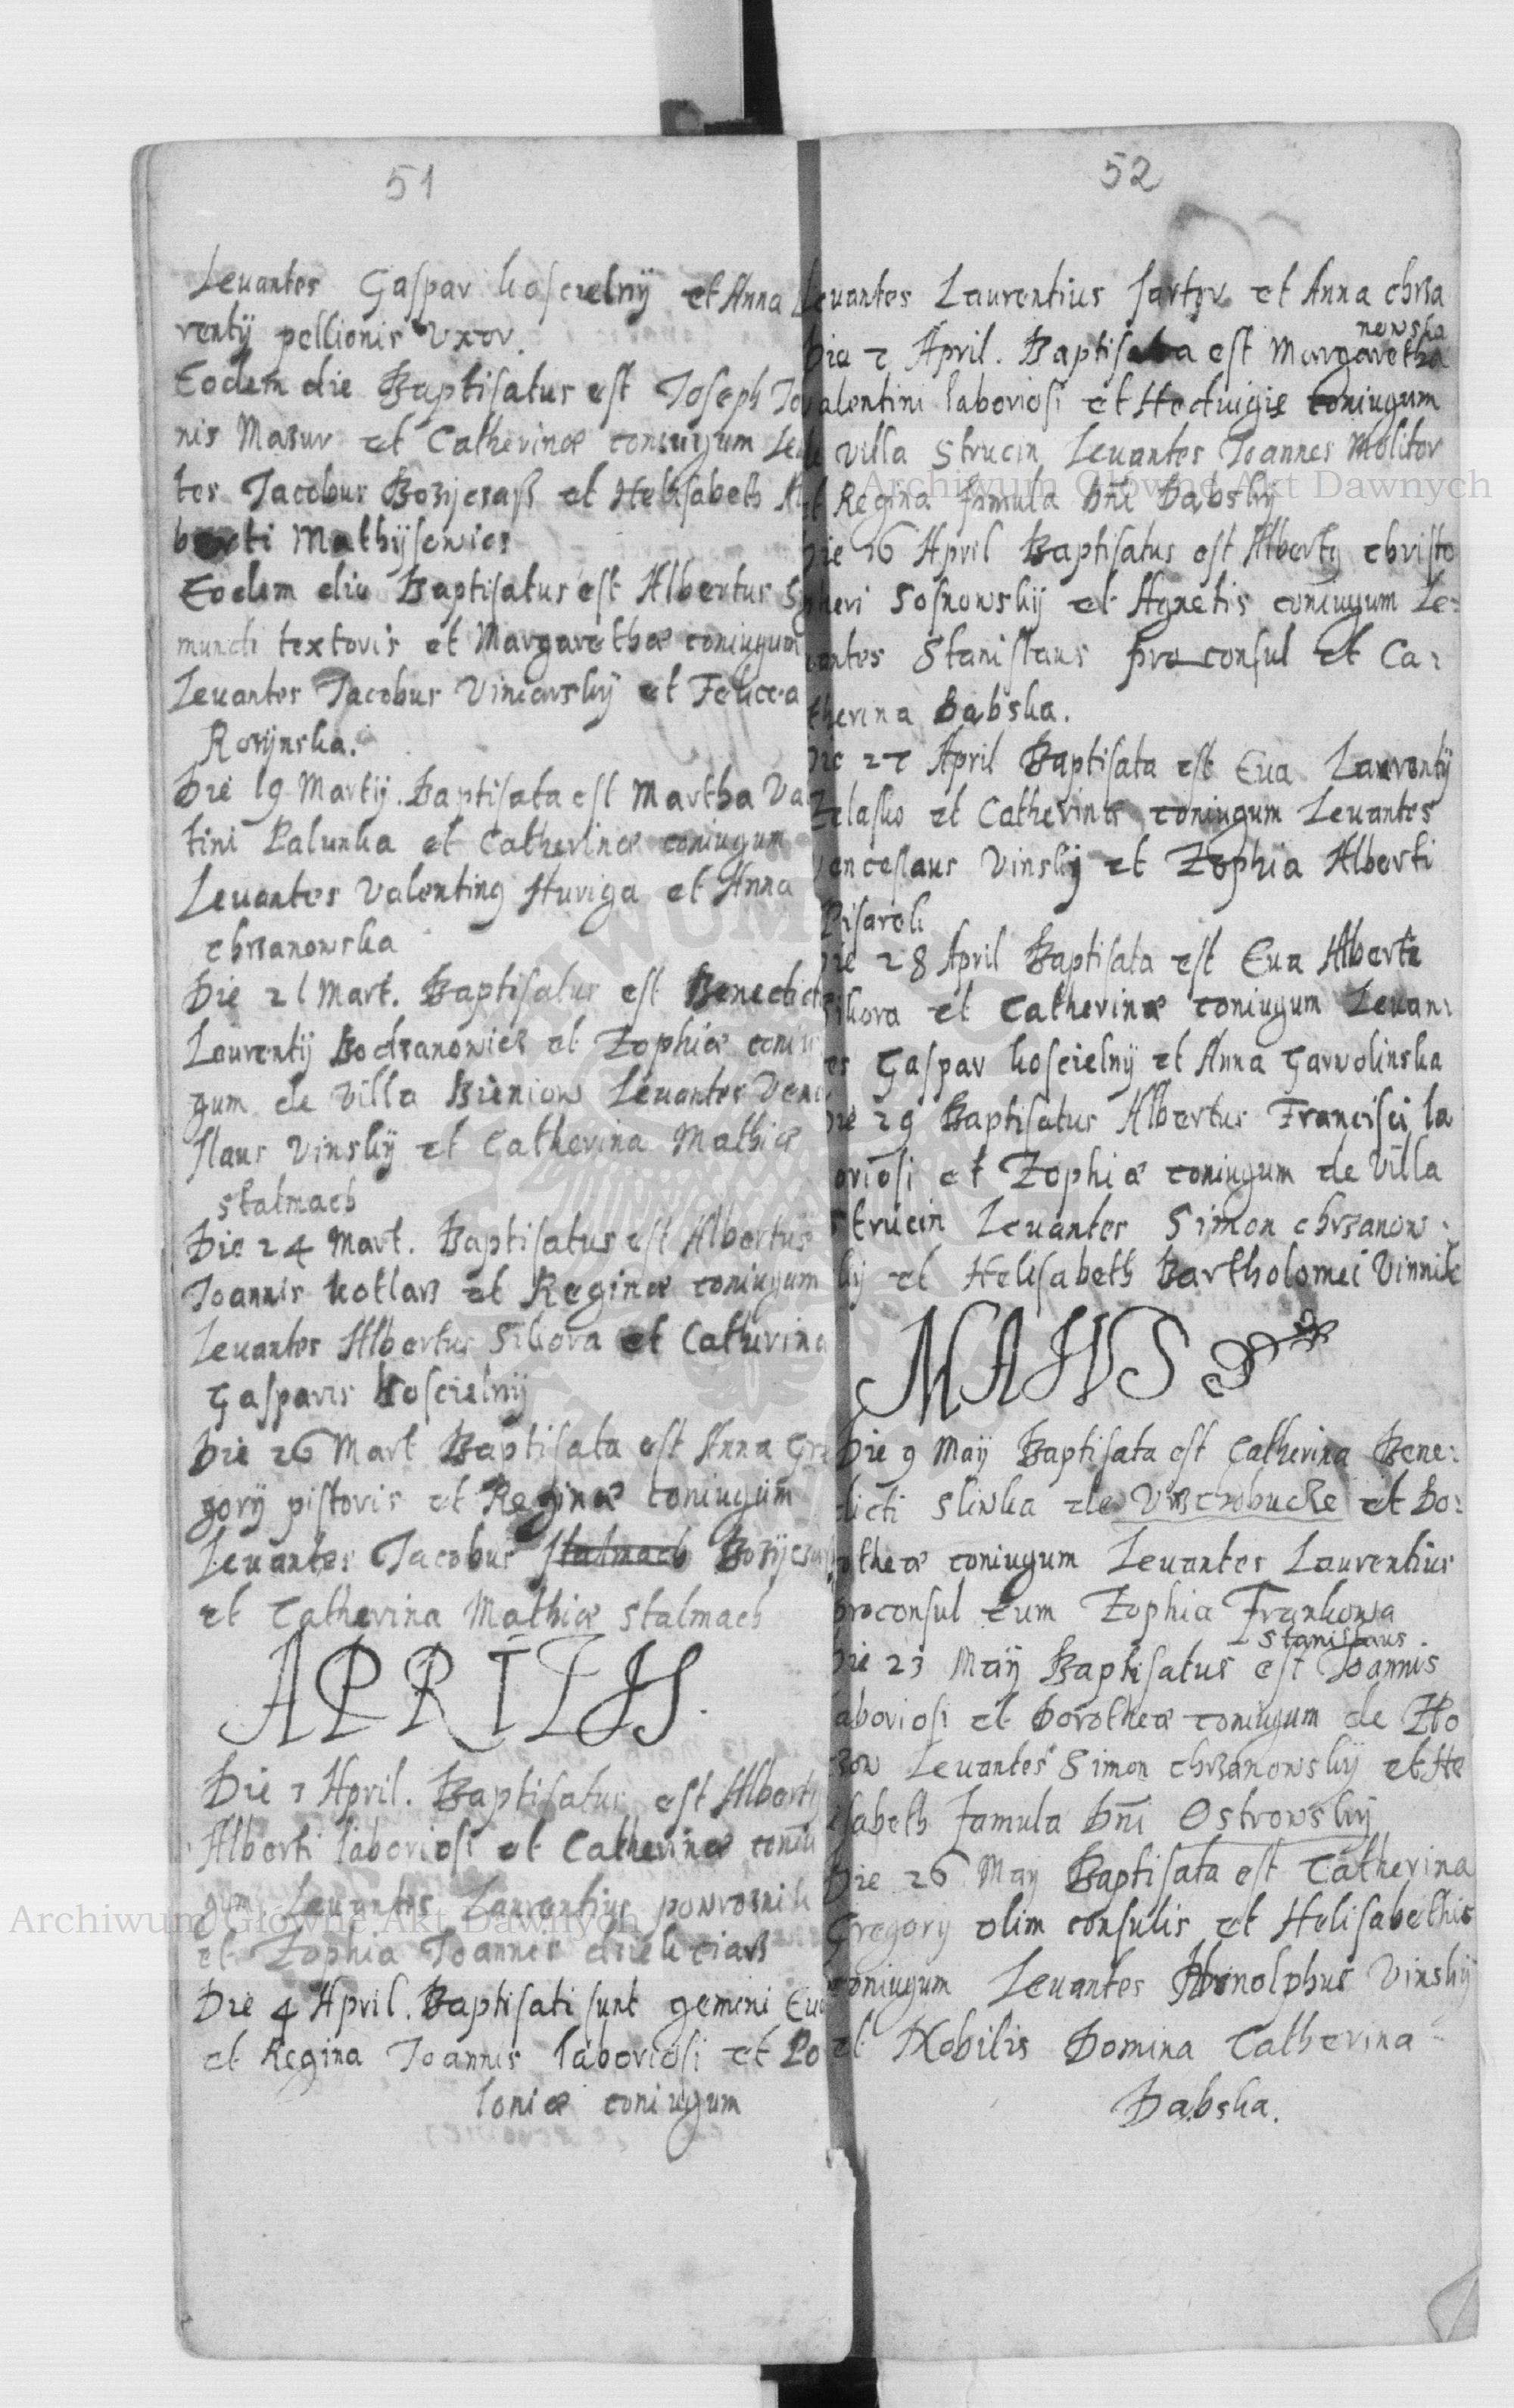 51
Levantes Gaspar Koscielnÿ et Anna
rentÿ pellionis Vxor.
Eodem die Baptisatus est Joseph Jo
nis Mazur et Catherinæ coniugum Le
tes Jacobus Bozÿczaß et Helisabeth Al
berti Mathÿsewicz
Eodem die Baptisatus est Albertus Sÿ
mundi textoris et Margarethæ coniugum
Levantes Jacobus Viniarskÿ et Felicia
Rozÿnska.
Die 19 Martÿ. Baptisata est Martha Va
tini Palunka et Catherinæ coniugum
Levantes Valentinus Kuriga et Anna
chrzanowska
Die 21 Mart. Baptisatus est Benedict
Laurentÿ Bodzanowicz et Zophiæ coniu
gum de villa Bieniow Levantes Vence
slaus Vinskÿ et Catherina Mathiæ
stalmach
Die 24 Mart. Baptisatus est Albertus
Joannis Kotlarz et Reginæ coniugum
Levantes Albertus Sikora et Catherina
Gasparis Koscielnÿ
Die 26 Mart Baptisata est Anna Gre
gorÿ pistoris et Reginæ coniugum
Levantes Jacobus stalmach Bozÿcza
et Catherina Mathiæ stalmach
APRILIS.
Die 3 April. Baptisatus est Albertus
Alberti laboriosi et Catherinæ coniu
gum Levantes Laurentius powroznik
et Zophia Joannis
Die 4 April. Baptisati sunt gemini Eva
et Regina Joannis laboriosi et Po
loniæ coniugum
52
Levantes Laurentius sartor et Anna chrza
nowska
Die 7 April. Baptisata est Margaretha
Valentini laboriosi et Hedvigis coniugum
de villa Strucin Levantes Joannes Molitor
et Regina famula Dni Dąbskÿ
Die 16 April Baptisatus est Albertus christo
pheri Sosnowskÿ et Agnetis coniugum Le:
vantes Stanislaus proconsul et Ca:
therina Dąbska.
Die 27 April Baptisata est Eva Laurentÿ
Zelasko et Catherinæ coniugum Levantes
Venceslaus Vinskÿ et Zophia Alberti
Pisarek
Die 28 April Baptisata est Eva Alberti
Sikora et Catherinæ coniugum Levan:
tes Gaspar Koscielnÿ et Anna Garwolinska
Die 29 Baptisatus Albertus Francisci la
boriosi et Zophiæ coniugum de villa
Strucin Levantes Simon chrzanow:
skÿ et Helisabeth Bartholomei Vinnik
MAIVS
Die 9 Maÿ Baptisata est Catherina Bene:
dicti Sliwka de et Do:
rotheæ coniugum Levantes Laurentius
proconsul cum Zophia Frankowa
Stanislaus
Die 23 Maÿ Baptisatus est Joannis
laboriosi et Dorotheæ coniugum de
Levantes Simon chrzanowskÿ et He
lisabeth famula Dni Ostrowskÿ
Die 26 Maÿ Baptisata est Catherina
Gregorÿ olim consulis et Helisabethis
coniugum Levantes Arnolphus Vinskÿ
et Nobilis Domina Catherina
Dąbska.
Archiwum Główne Akt Dawnych
Archiwum Główne Akt Dawnych